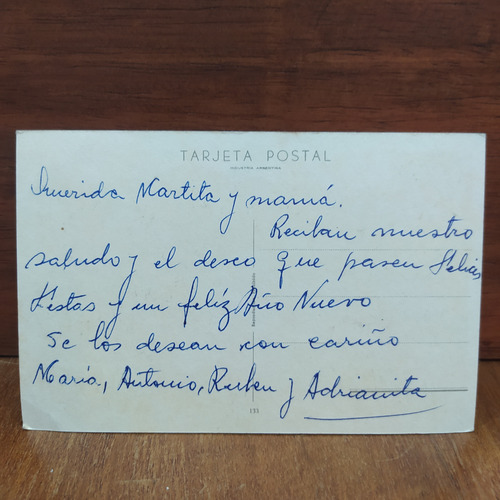 TARJETA POSTAL
INDUSTRIA ARGENTINA
Querida Martita y mamá.
Reciban nuestro
saludo y el deseo que pasen Felices
Fiestas y un felíz Año Nuevo
Se los desean con cariño
María, Antonio, Ruben y Adrianita
133